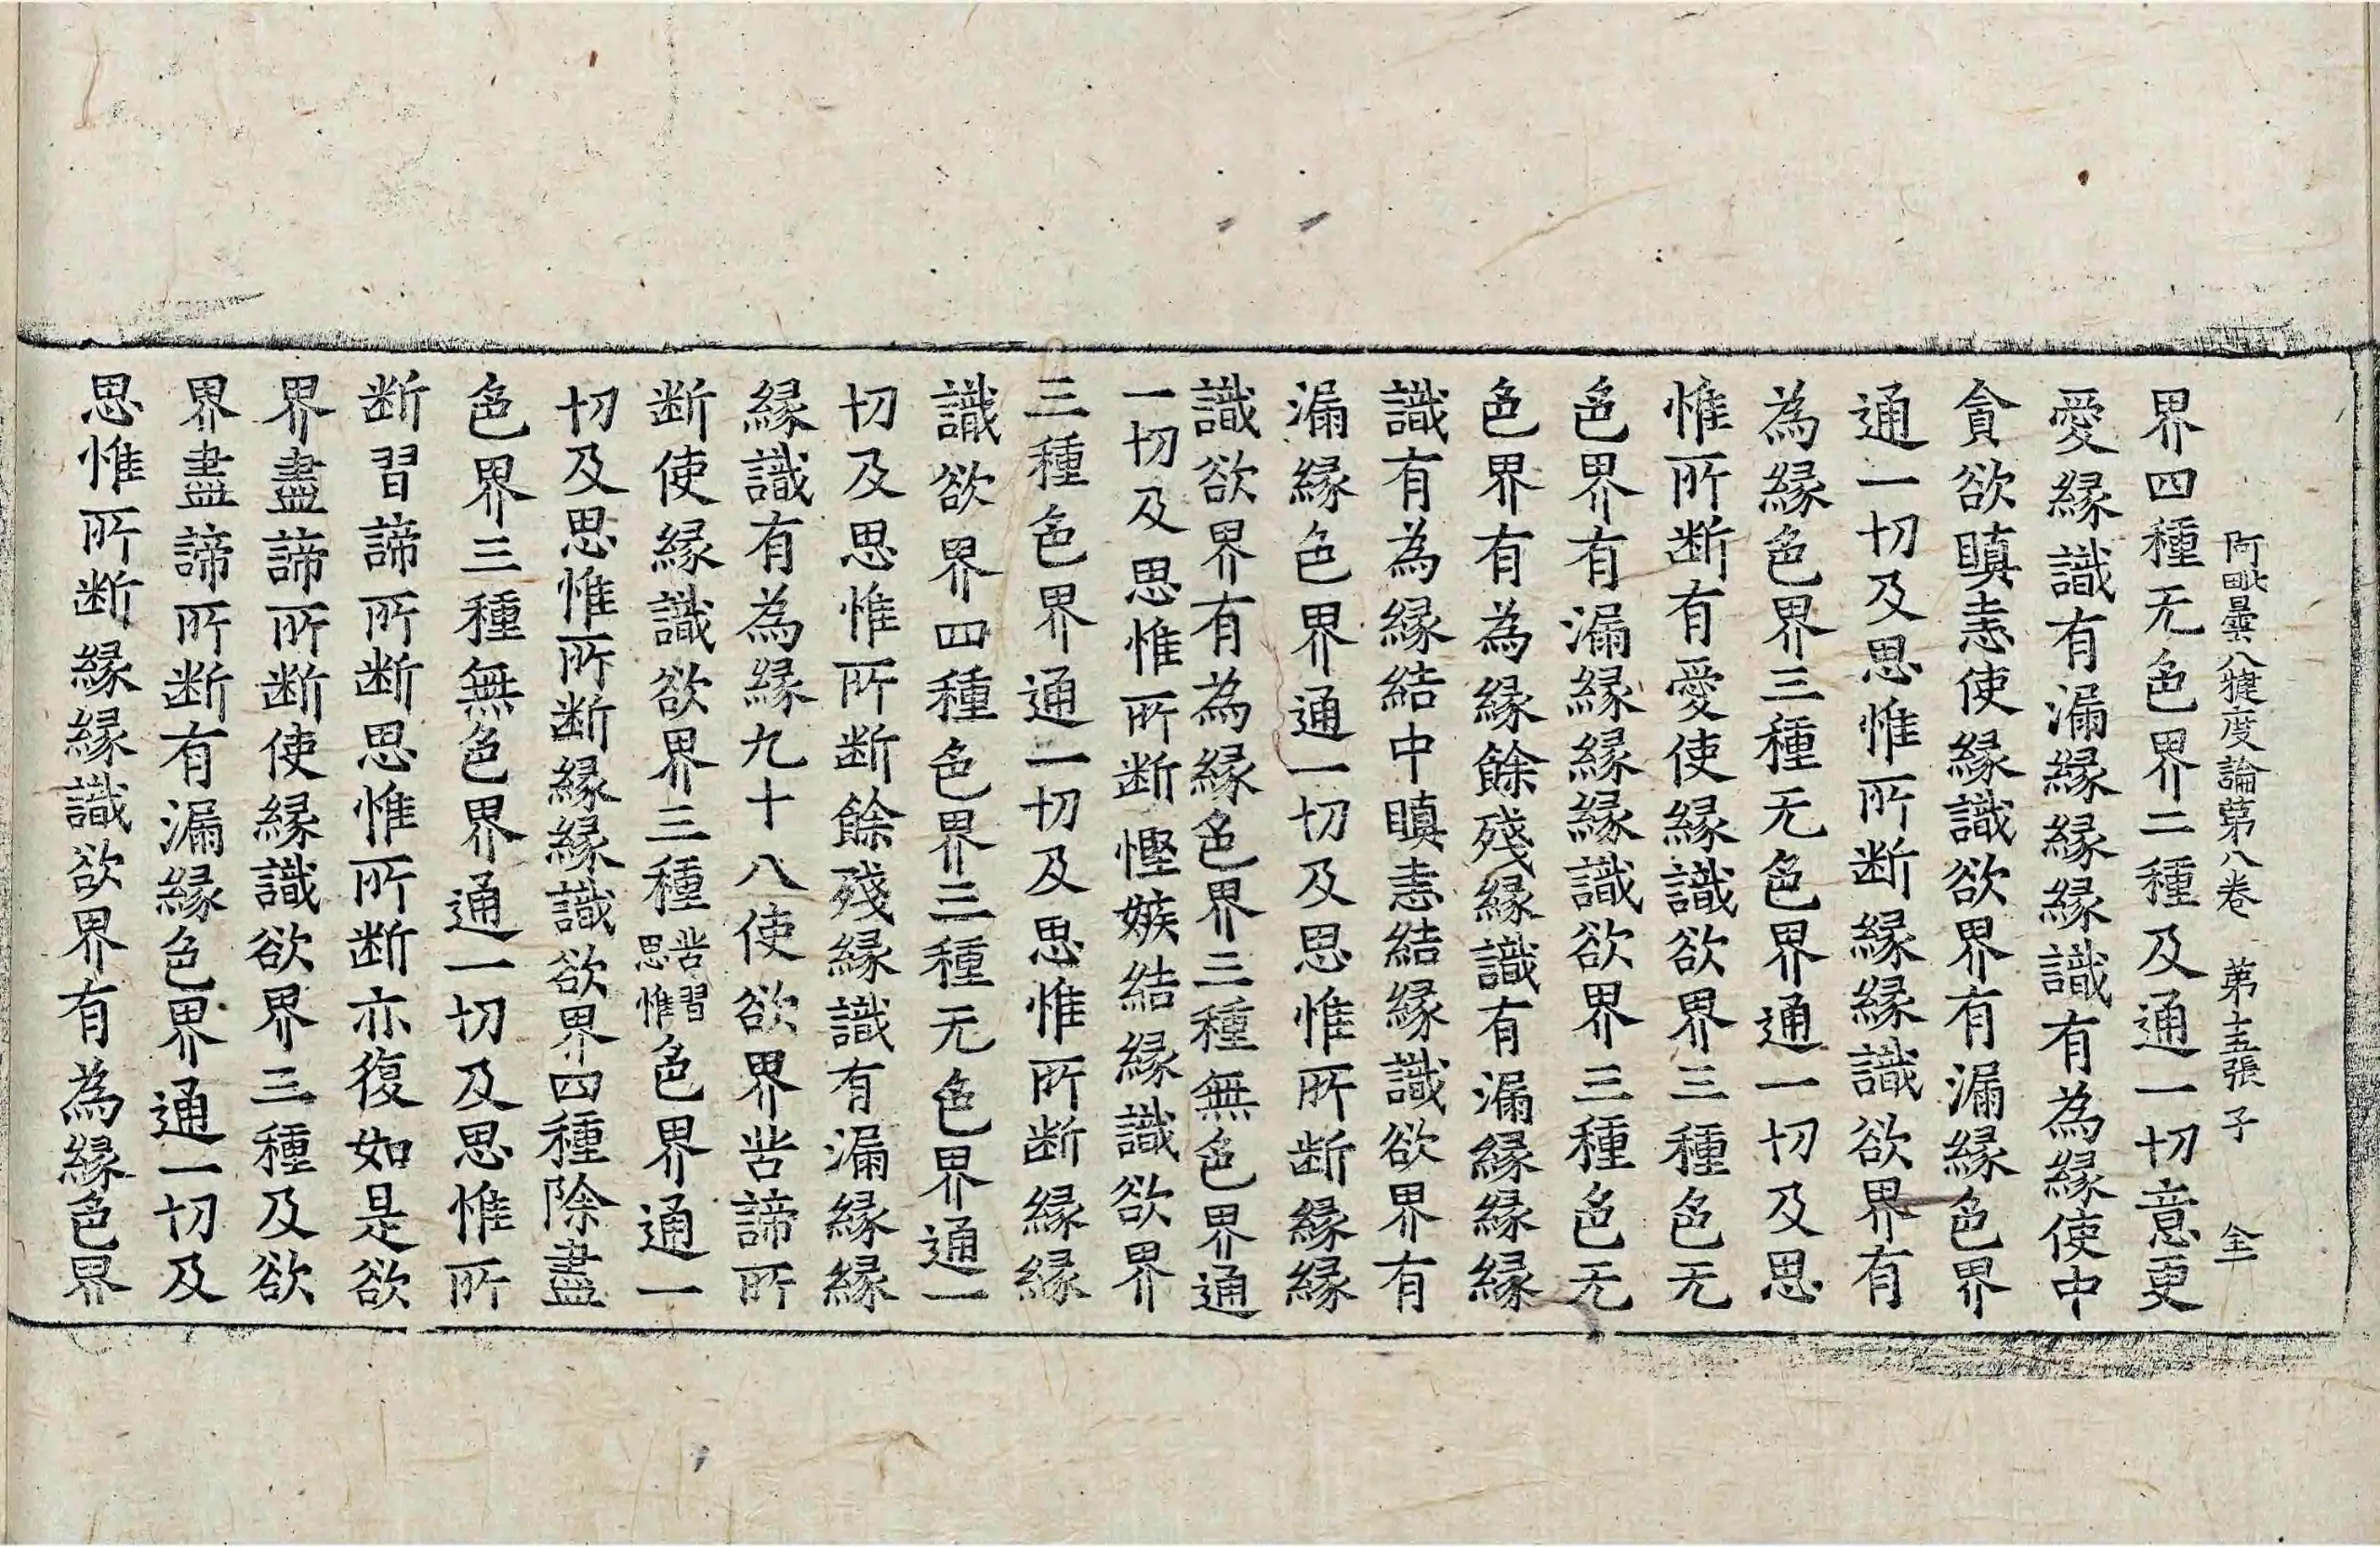 阿毗曇八犍度論第八卷　第十五張　子　全
界四種无色界二種及通一切意更
愛緣識有漏緣緣識有為緣使中
貪欲瞋恚使緣識欲界有漏緣色界
通一切及思惟所断緣緣識欲界有
為緣色界三種无色界通一切及思
惟所断有愛使緣識欲界三種色无
色界有漏緣緣緣識欲界三種色无
色界有為緣餘殘緣識有漏緣緣緣
識有為緣結中瞋恚結緣識欲界有
漏緣色界通一切及思惟所断緣緣
識欲界有為緣色界三種無色界通
一切及思惟所断慳嫉結緣識欲界
三種色界通一切及思惟所断緣緣
識欲界四種色界三種无色界通一
切及思惟所断餘殘緣識有漏緣緣
緣識有為緣九十八使欲界苦諦所
断使緣識欲界三種苦習思惟色界通一
切及思惟所断緣緣識欲界四種除盡
色界三種無色界通一切及思惟所
断習諦所断思惟所断亦復如是欲
界盡諦所断使緣識欲界三種及欲
界盡諦所断有漏緣色界通一切及
思惟所断緣緣識欲界有為緣色界